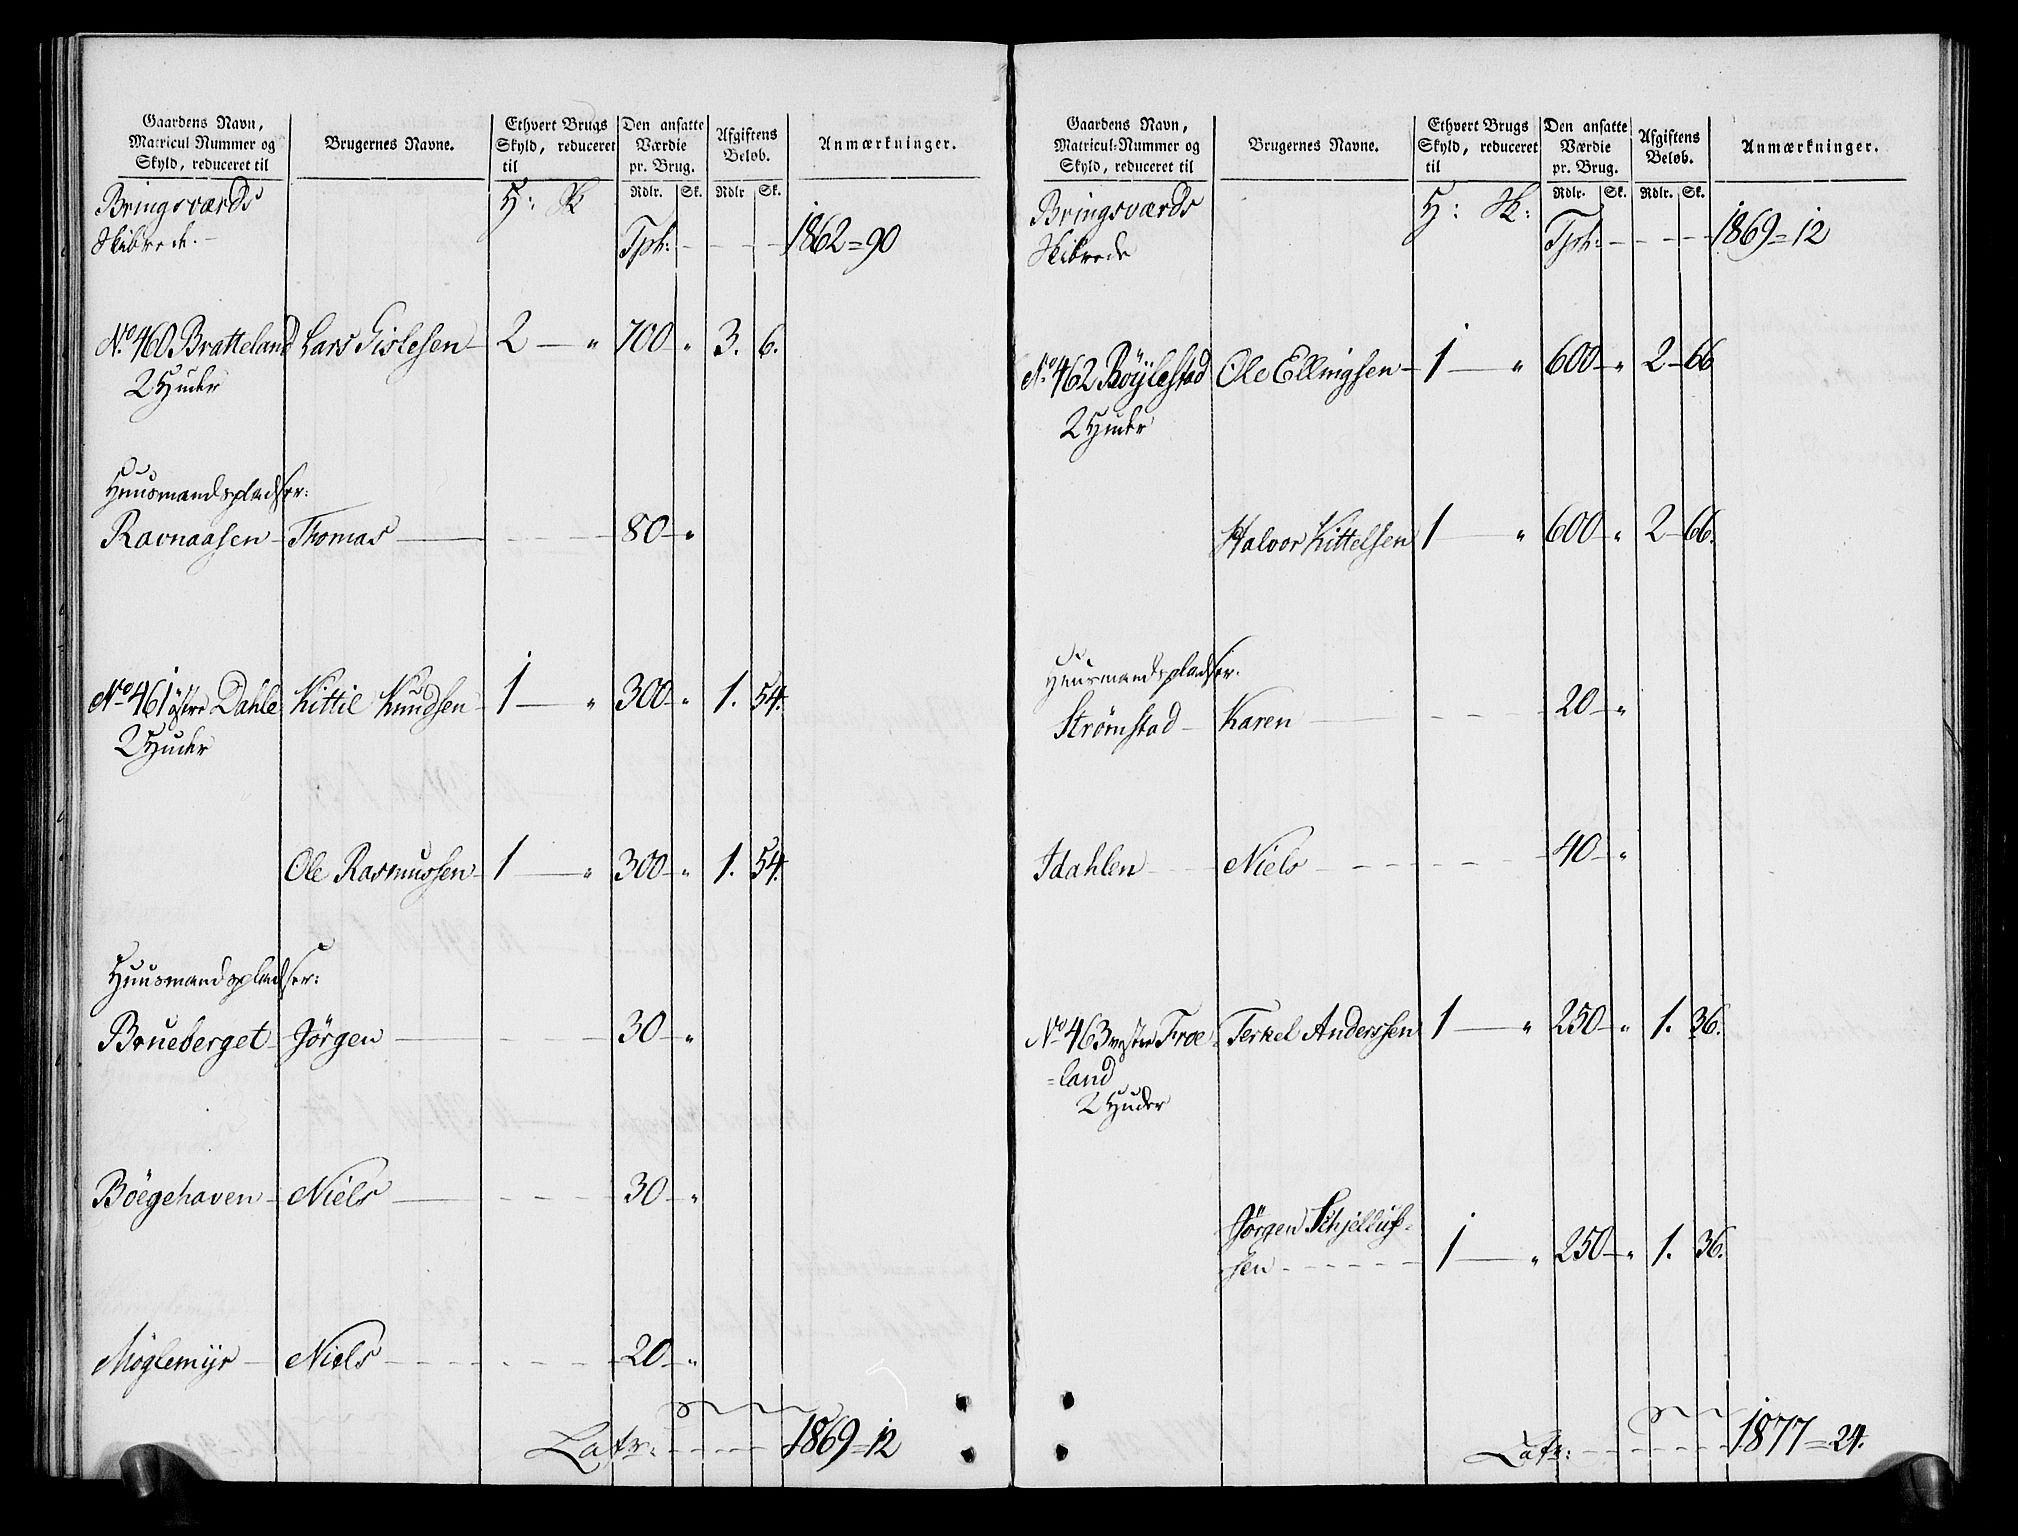 Gaardens Navn, Matricul Nummer og Skyld, reduceret til | Brugernes Navne. | Ethvert Brugs Skyld, reduceret til | Den ansatte Værdie pr. Brug. | Afgiftens Beløb. | Anmærkninger.
Rdlr. Sk. Rdlr Sk.
Bringsværds H: Sk
Skibrede. Tpt: 1862=90
No. 460. Bratteland Lars Gislesen 2 — " 700 " 3. 6.
2 Huder
Huusmandspladser:
Ravnaasen Thomas 80 "
No. 461 östre Dahle Kittil Knudsen 1 — " 300 " 1. 54.
2 Huder
Ole Rasmussen 1 — " 300 " 1. 54.
Huusmandspladser:
Brueberget Jörgen 30 "
Böegehaven Niels 30 "
Möglemijr Niels 20 "
Latr: 1869=12
Gaardens Navn, Matricul-Nummer og Skyld, reduceret til | Brugernes Navne. | Ethvert Brugs Skyld, reduceret til | Den ansatte Værdie pr. Brug. | Afgiftens Beløb. | Anmærkninger.
Rdlr. Sk. Rdlr. Sk.
Bringsværds H: Sk:
Skibrede Tpt: 1869=12
No. 462 Böijlestad Ole Ellingsen 1 — " 600 " 2 66
2 Huder
Halvor Kittelsen 1 — " 600 " 2 66.
Huusmandspladser:
Strömstad Karen 20 "
Idahlen Niels 40 "
No. 463 vestre Froe Terkel Anderssen 1 — " 250 " 1. 36.
=land
2 Huder
Jörgen Schjelduf-
sen 1 — " 250 " 1. 36.
Latr: 1877=24.